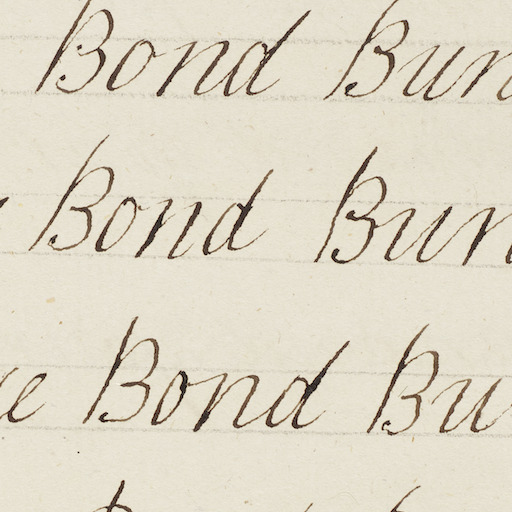 Bond Bun
Bond Bun
Bond Bu